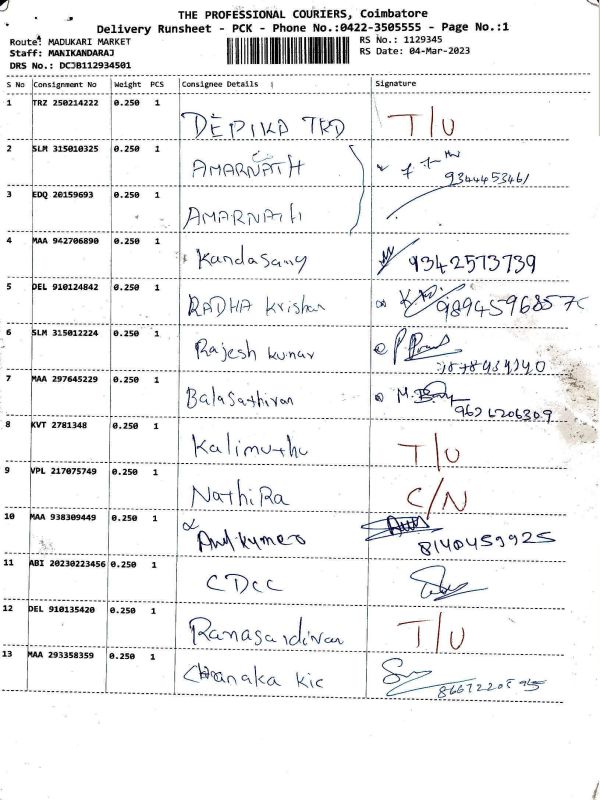 THE PROFESSIONAL COURIERS, Coimbatore
Delivery Runsheet - PCK - Phone No.:0422-3505555 - Page No.:1
Route: MADUKARI MARKET RS No.: 1129345
Staff: MANIKANDARAJ RS Date: 04-Mar-2023
DRS No.: DCJB112934501
S No Consignment No Weight PCS Consignee Details Signature
1 TRZ 250214222 0.250 1 DEPIKA TRD T/U
2 SLM 315010325 0.250 1 AMARNATH 9344453461
3 EDQ 20159693 0.250 1 AMARNATH
4 MAA 942706890 0.250 1 Kandasamy 9342573739
5 DEL 910124842 0.250 1 RADHA Krishan
6 SLM 315012224 0.250 1 Rajesh kumar
7 MAA 297645229 0.250 1 Balasathivan 9626206309
8 KVT 2781348 0.250 1 Kalimuthu T/U
9 VPL 217075749 0.250 1 NathiRa C/N
10 MAA 938309449 0.250 1 8140459925
11 ABI 20230223456 0.250 1 CDCC
12 DEL 910135420 0.250 1 T/U
13 MAA 293358359 0.250 1